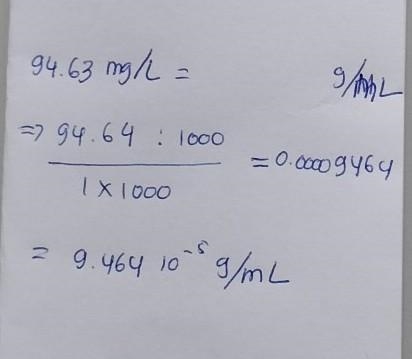 94.63 mg/L = g/mL
=> 94.64 : 1000
1 x 1000
= 0.00009464
= 9.464 10⁻⁵ g/mL